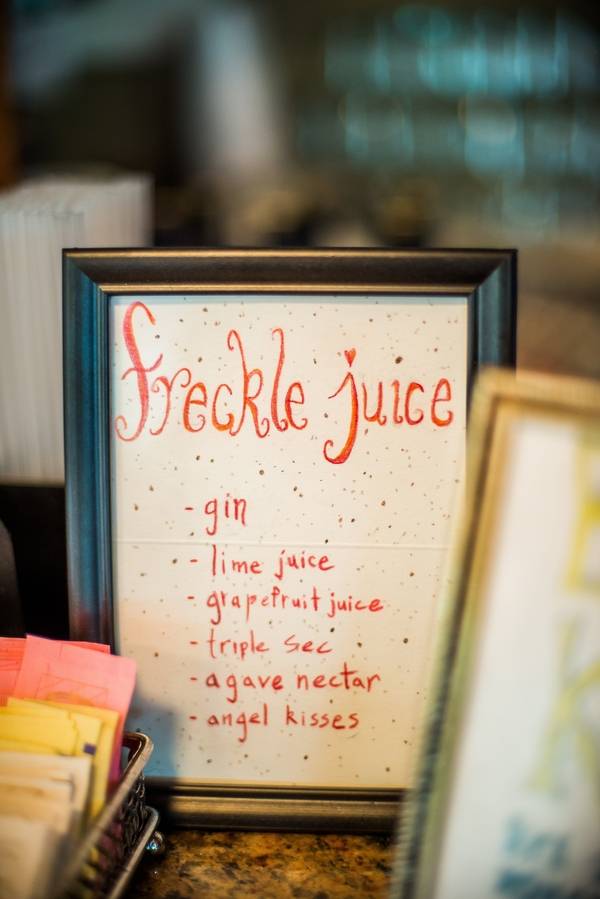 freckle juice
- gin
- lime juice
- grapefruit juice
- triple sec
- agave nectar
- angel kisses